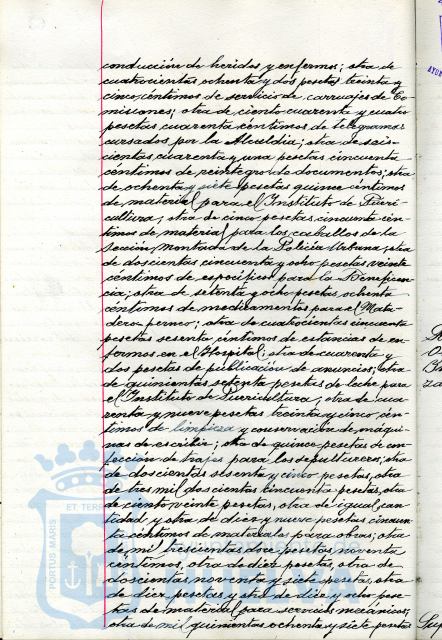 conducción de heridos y enfermos; otra de
cuatrocientas ochenta y dos pesetas treinta y
cinco céntimos de servicio de carruajes de Co-
misiones; otra de ciento cuarenta y cuatro
pesetas cuarenta céntimos de telegramas
cursados por la Alcaldía; otra de seis-
cientas cuarenta y una pesetas cincuenta
céntimos de reintegro de documentos; otra
de ochenta y siete pesetas quince céntimos
de material para el Instituto de Pueri-
cultura; otra de cinco pesetas cincuenta cén-
timos de material para los caballos de la
Sección Montada de la Policía Urbana; otra
de doscientas cincuenta y ocho pesetas veinte
céntimos de específicos para la Beneficen-
cia; otra de setenta y ocho pesetas ochenta
céntimos de medicamentos para el Mata-
dero; otra de cuatrocientas cincuenta
pesetas sesenta céntimos de estancias de en-
fermos en el Hospital; otra de cuarenta y
dos pesetas de publicación de anuncios; otra
de quinientas setenta pesetas de leche para
el Instituto de Puericultura; otra de cua-
renta y nueve pesetas treinta y cinco cén-
timos de limpieza y conservación de máqui-
nas de escribir; otra de quince pesetas de con-
fección de trajes para los sepultureros; otra
de doscientas sesenta y cinco pesetas, otra
de tres mil doscientas cincuenta pesetas, otra
de ciento veinte pesetas, otra de igual can-
tidad y otra de diez y nueve pesetas cincuen-
ta céntimos de materiales para obras; otra
de mil trescientas doce pesetas noventa
céntimos, otra de diez pesetas, otra de
doscientas noventa y siete pesetas, otra
de diez pesetas y otra de diez y ocho pese-
tas de material para servicios mecánicos;
otra de mil quinientas ochenta y siete pesetas
PORTUS MARIS
ET TERR